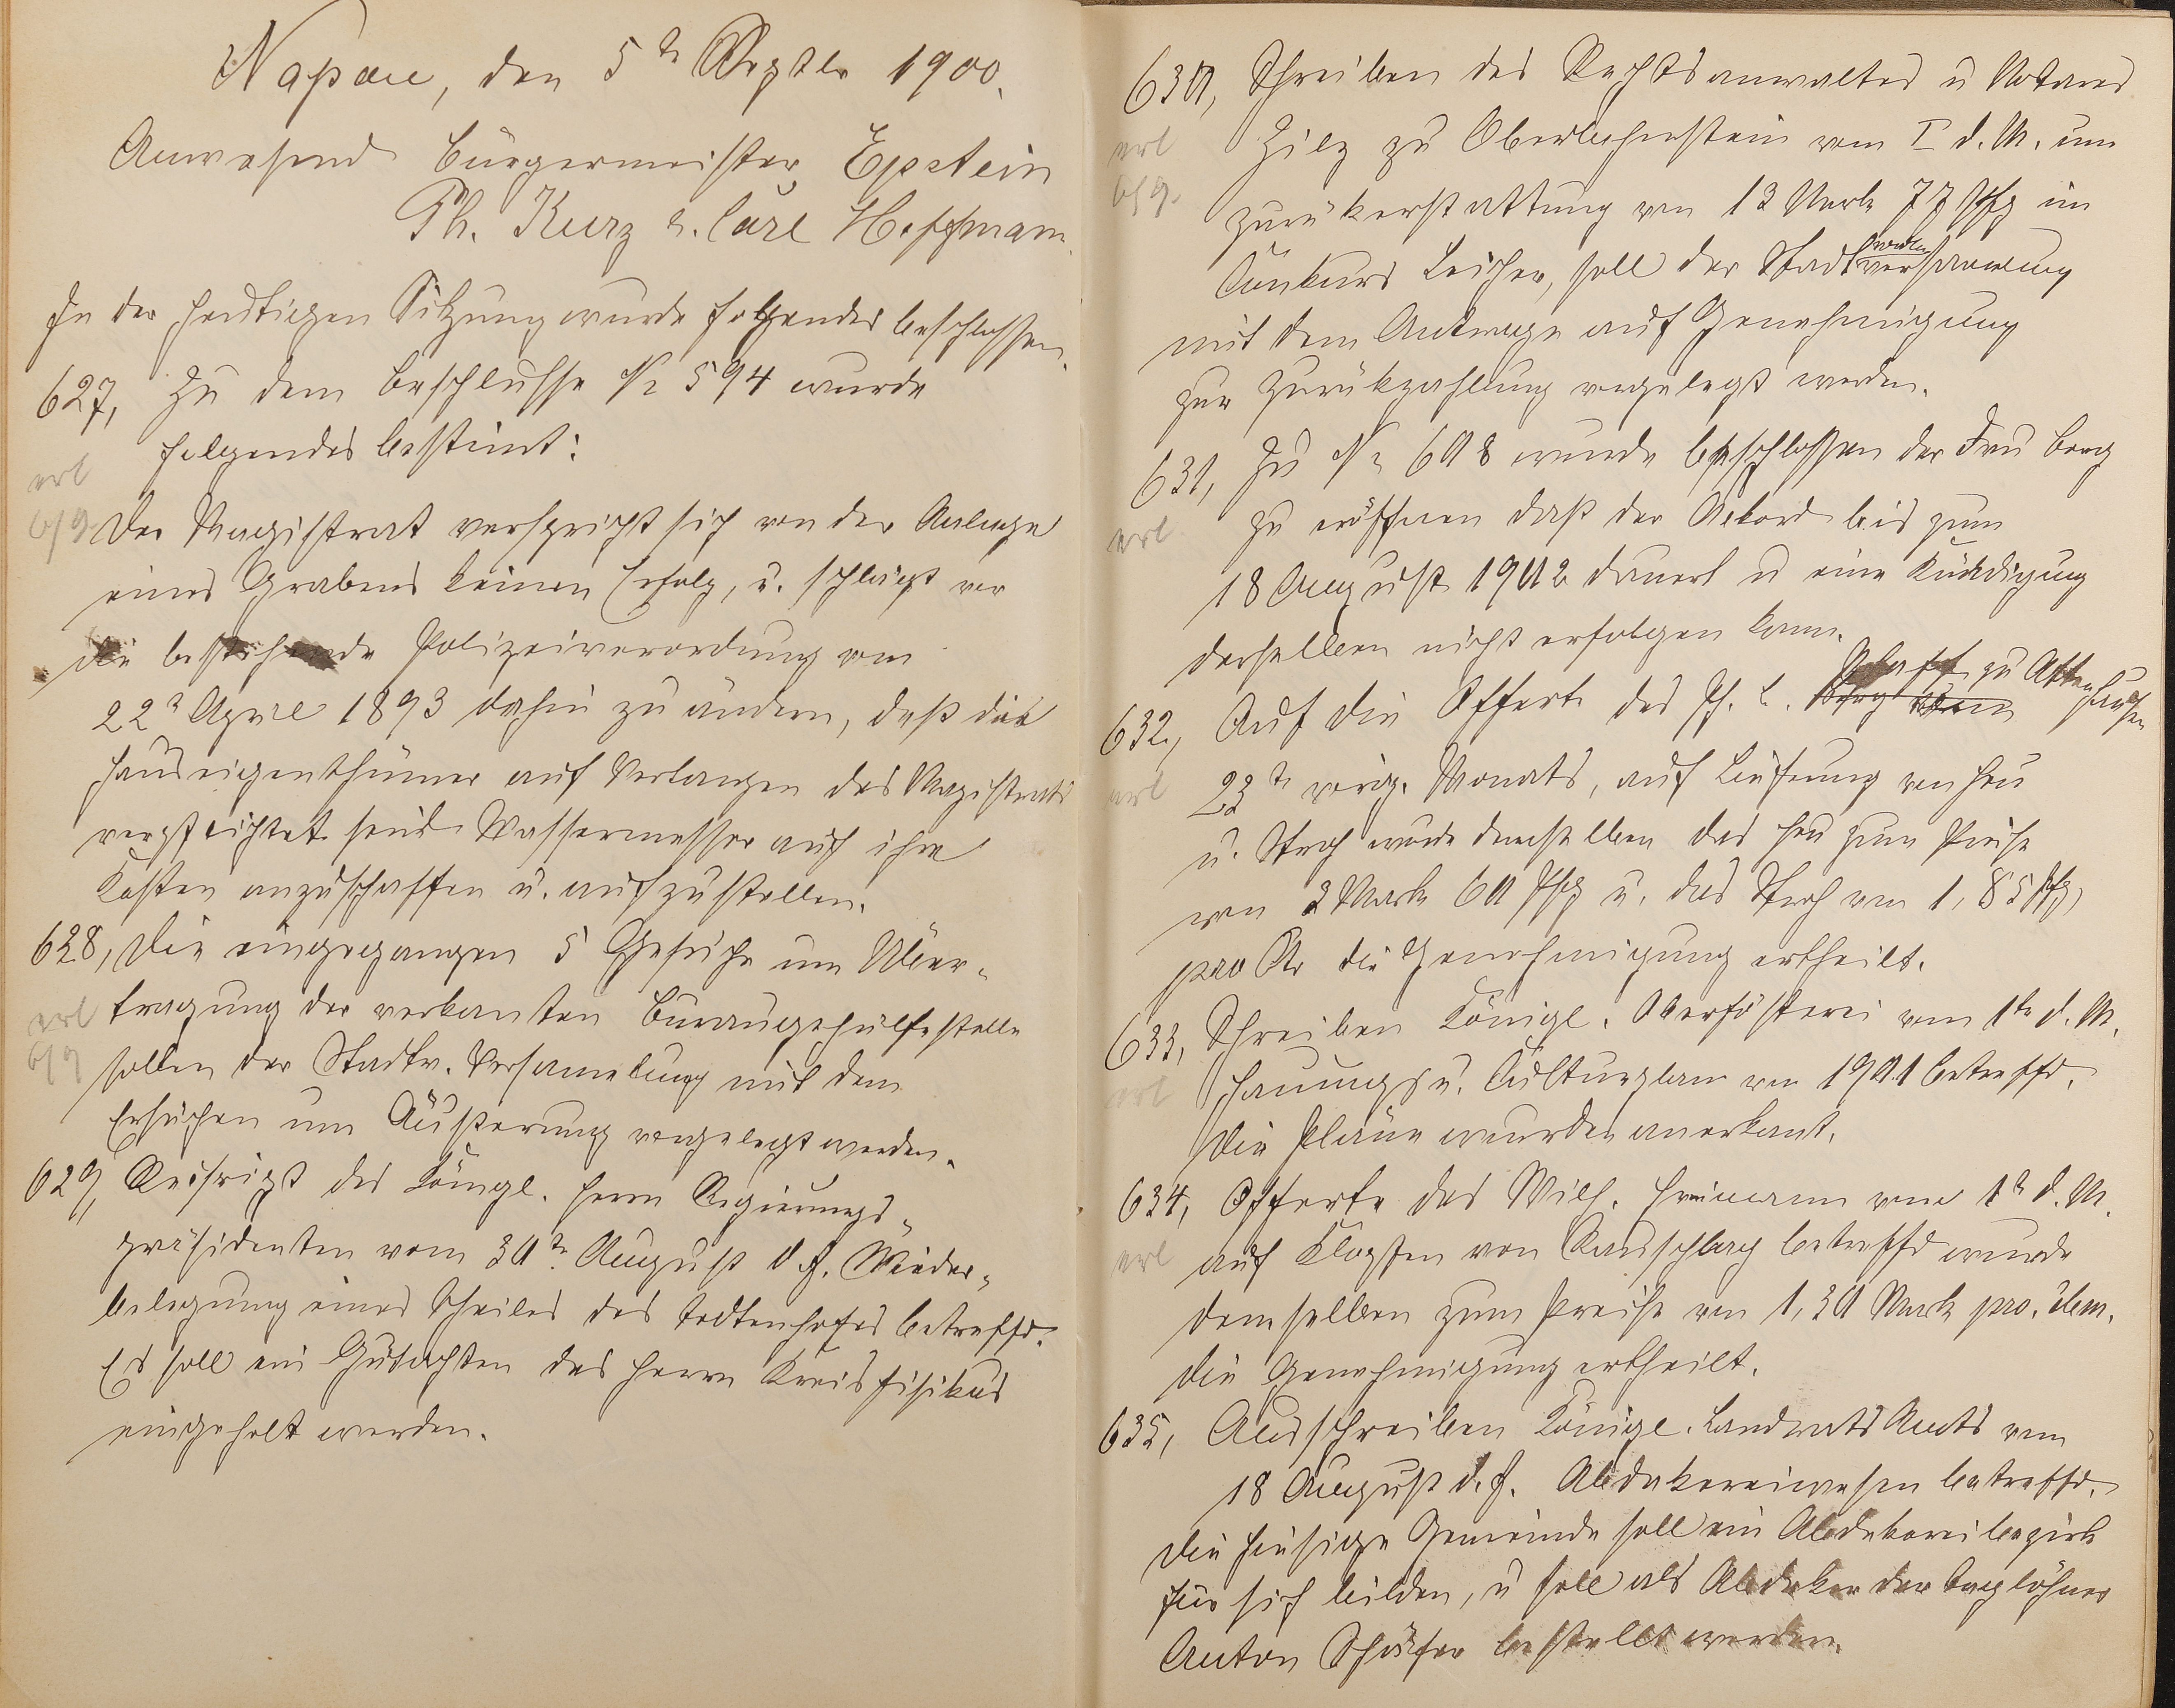 Nassau, den 5t Septbr 1900.
Anwesend Bürgermeister Epstein
Ph. Kurz u. Carl Hoffmann.
In der heutigen Sitzung wurde folgendes beschlossen.
627, Zu dem Beschlusse No 594 wurde
folgendes bestimt:
erl
6/9 Der Magistrat verspricht sich von der Anlage
eines Grabens keinen Erfolg, u. schlägt vor
die bestehende Polizeiverordnung vom
22t April 1893 dahin zu ändern, daß die
Hauseigenthümer auf Verlangen des Magistrats
verpflichtet seind Wassermesser auf ihre
Kosten anzuschaffen u. aufzustellen.
628, Die eingegangen 5 Gesuche um Über-
erl tragung der verkanten Büraugehülfestelle
6/9 sollen der Stadtv. Versamelung mit dem
Ersuchen um Äußerung vorgelegt werden.
629, Reskript des Königl. Herrn Regierungs-
präsidenten vom 30te August d. J. Wieder-
belegung eines Theiles des Todtenhofes betreffd.
Es soll ein Gutachten des Herrn Kreisfisikus
eingeholt werden.
630, Schreiben des Rechtsanwaltes u Notars
erl Hilz zu Oberlahnstein vom I d. M. um
6/9. zurükerstattung von 13 Mark 77 Pfg im
Conkurs Leicher, soll der Stadtverordnetenversammlung
mit dem Antrage auf Genehmigung
zur Zurükzahlung vorgelegt werden.
631, Zu No 608 wurde beschlossen der Frau Berg
erl zu eröffnen daß der Akord bis zum
18 August 1902 dauert u eine Kündigung
derselben nicht erfolgen kann.
632, Auf die Offerte des Ph. L. zu Attenhausen
erl 23te vorig. Monats, auf Lieferung von Heu
u. Stroh wurde demselben das Heu zum Preise
von 3 Mark 60 Pfg u. das Stroh von 1,85 Pfg,
pro Ctr die Genehmigung ertheilt.
633, Schreiben Königl. Oberfösterei vom 1te d. M.
erl Hauungs u. Culturplan von 1901 betreffd.
Die Pläne wurden anerkant.
634, Offerte des Wilh. Heinmann vom 1te d. M.
erl auf Klopfen von Rauschlag betreffd wurde
demselben zum Preise von 1,30 Mark pro. cbm.
die Genehmigung ertheilt.
635, Ausschreiben Königl. Landrats Amts vom
18 August d. J. Abdekereiwesen betreffd.
Die hiesige Gemeinde soll ein Abdekereibezirk
für sich bilden, u soll als Abdeker der Taglöhner
Anton Schäfer bestellt werden.